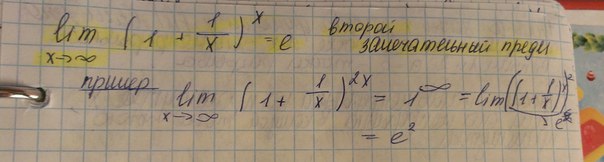 lim x→∞ (1 + 1/x)^x = e второй
замечательный преде
пример lim x→∞ (1 + 1/x)^2x = 1^∞ = lim((1+1/x)^x)^2
= e^2